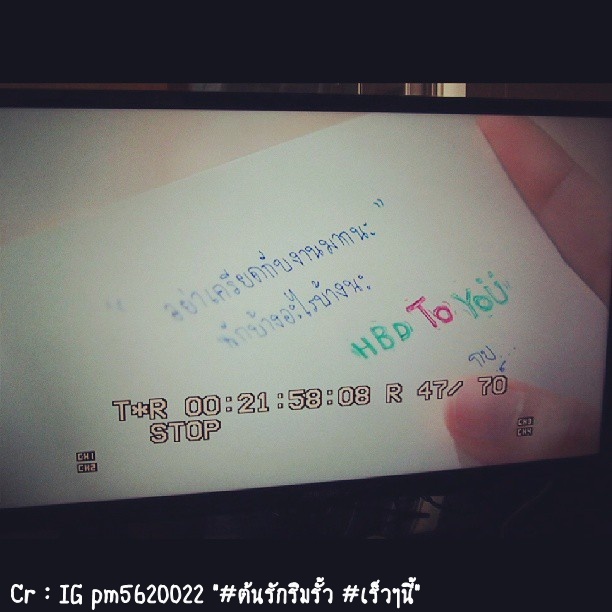 " อย่าเครียดกับงานมากนะ "
พักบ้างอะไรบ้างนะ
HBD To YoU
กบ...
T*R 00:21:58:08 R 47/ 70
STOP
CH1
CH2
CH3
CH4
Cr : IG pm5620022 "#ต้นรักริมรั้ว #เร็วๆนี้"